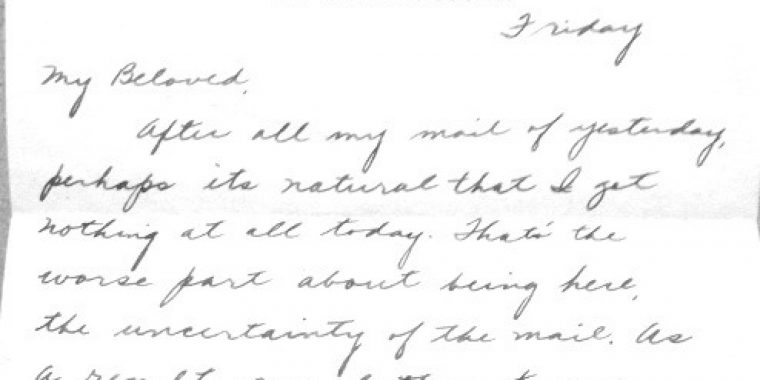 Friday
My Beloved,
After all my mail of yesterday,
perhaps its natural that I get
nothing at all today. That's the
worse part about being here,
the uncertainty of the mail. As
a result